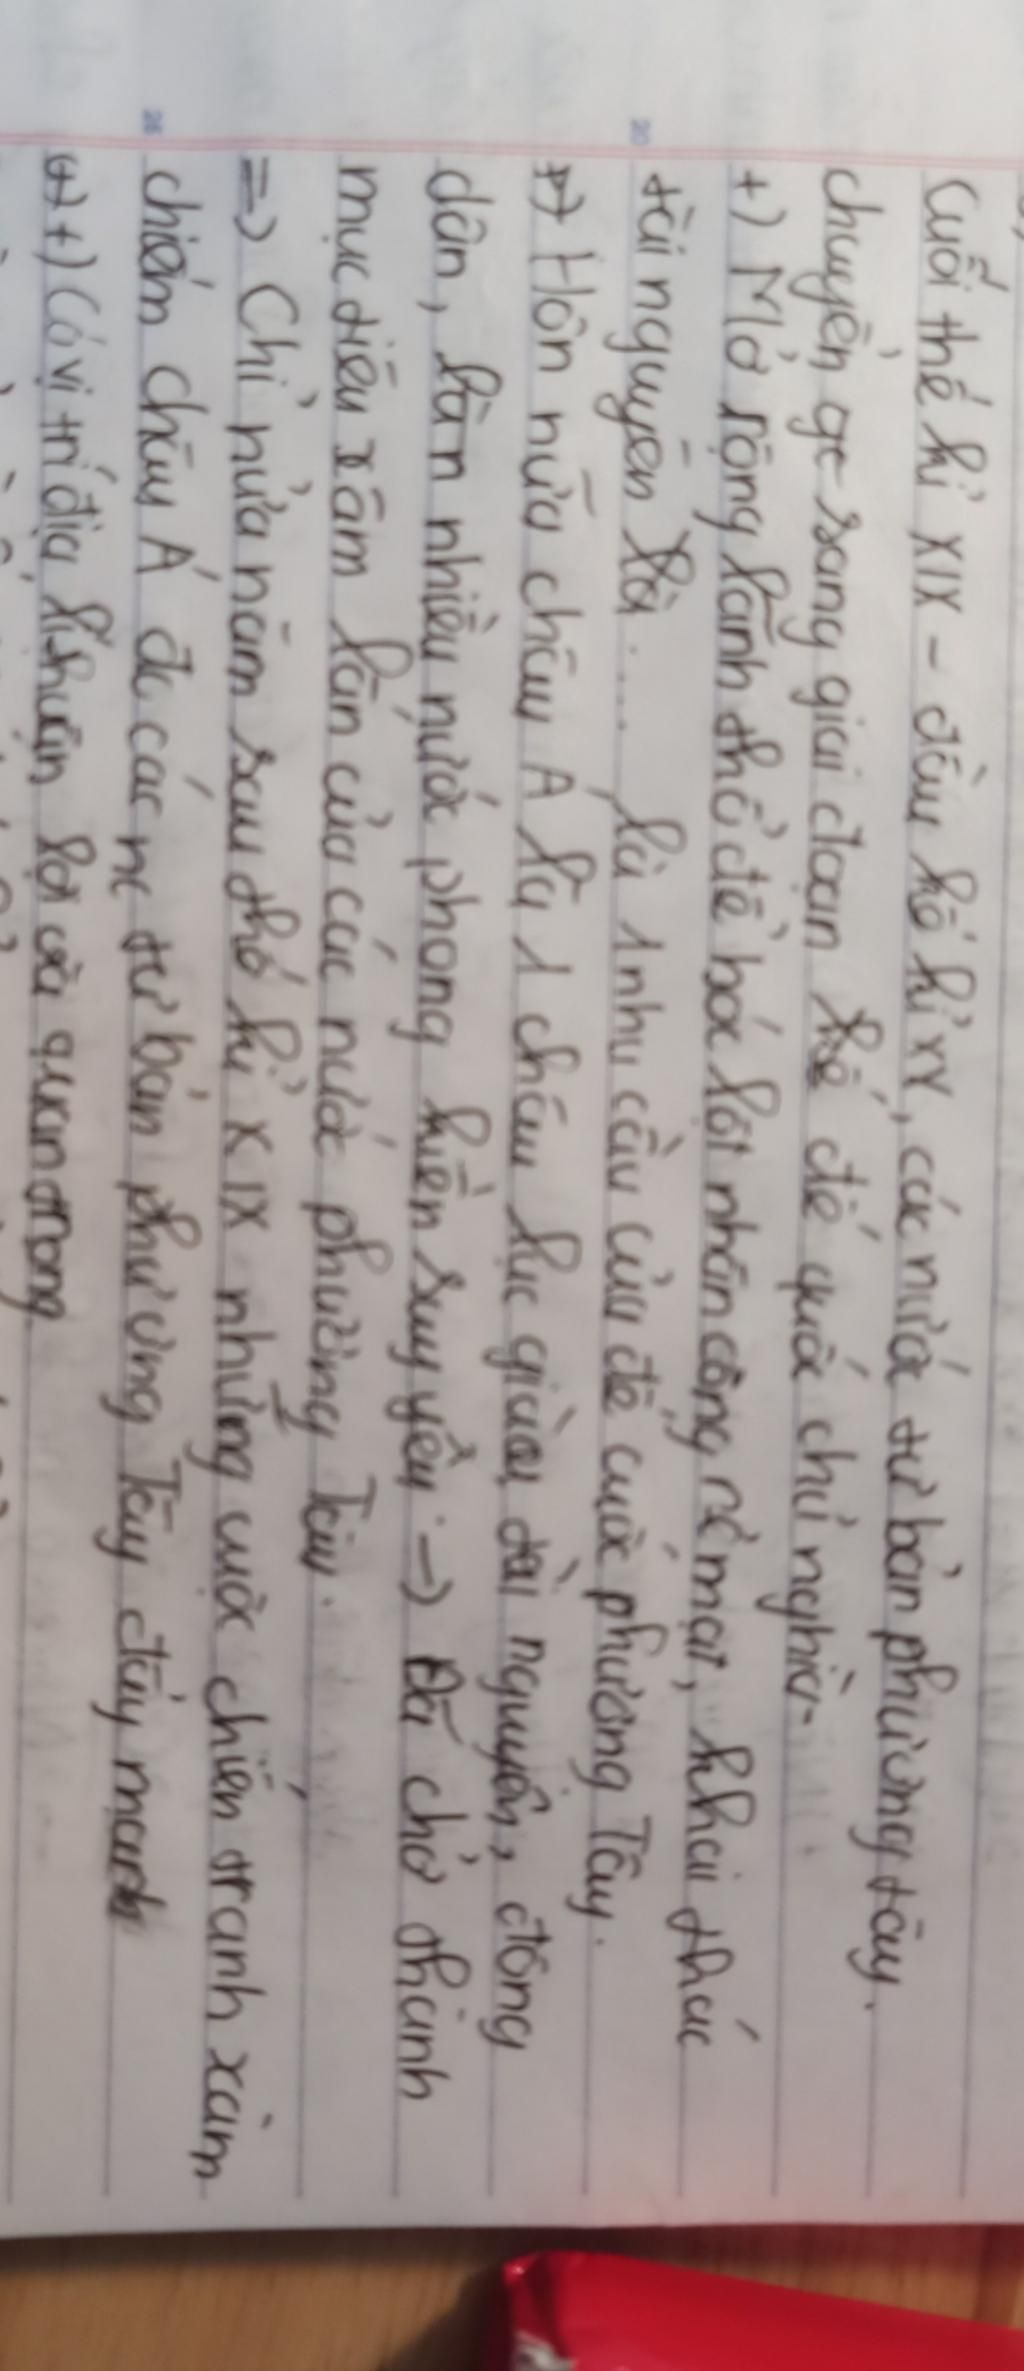 Cuối thế kỉ XIX - đầu kế kỉ XX, các nước tư bản phương tây.
chuyển gt sang giai đoạn đế quốc chủ nghĩa.
+) Mở rộng lãnh thổ để bóc lột nhân công rẻ mạt, khai thác
tài nguyên là .... là 1 nhu cầu của đế cuốc phương Tây.
+) Hơn nữa châu Á là 1 châu lục giàu tài nguyên, đông
dân, làn nhiều nước phong kiến suy yếu -> Đã chở thành
mục tiêu xâm lăn của các nước phương Tây.
=> Chỉ nửa năm sau thế kỉ XIX những cuộc chiến tranh xâm
chiếm châu Á đc các nc tư bản phương Tây đẩy mạnh
+) Có vị trí địa lí thuận lợi và quan trọng
20
25